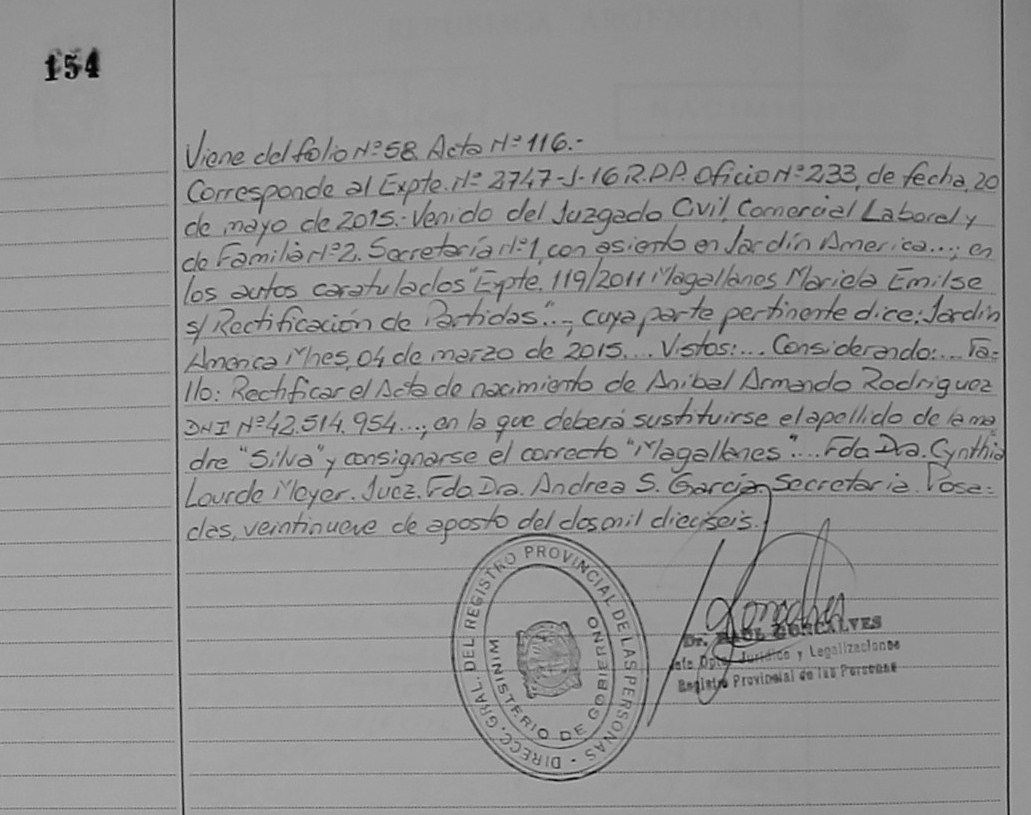 154
Viene del folio Nº 58 Acta Nº 116.-
Corresponde al Expte. Nº 2747-J-16 R.P.P. Oficio Nº 233, de fecha, 20
de mayo de 2015.- Venido del Juzgado Civil, Comercial Laboral y
de Familia Nº 2. Secretaría Nº 1, con asiento en Jardín America...; en
los autos caratulados "Expte. 119/2011 Magallanes Mariela Emilse
s/ Rectificación de Partidas"..., cuya parte pertinente dice: Jardín
América Mnes, 04 de marzo de 2015... Vistos:... Considerando:... Fa=
llo: Rectificar el Acta de nacimiento de Anibal Armando Rodriguez
DNI Nº 42.514.954...; en la que deberá sustituirse el apellido de la ma
dre "Silva" y consignarse el correcto "Magallanes"... Fdo Dra. Cynthia
Lourde Meyer. Juez. Fdo. Dra. Andrea S. Garcia, Secretaria. Posa=
das, veintinueve de agosto del dos mil dieciseis.
DIRECC. GRAL. DEL REGISTRO PROVINCIAL DE LAS PERSONAS -
MINISTERIO DE GOBIERNO
Dr. RAUL GONCALVES
Jefe Dpto. Jurídico y Legalizaciones
Registro Provincial de las Personas